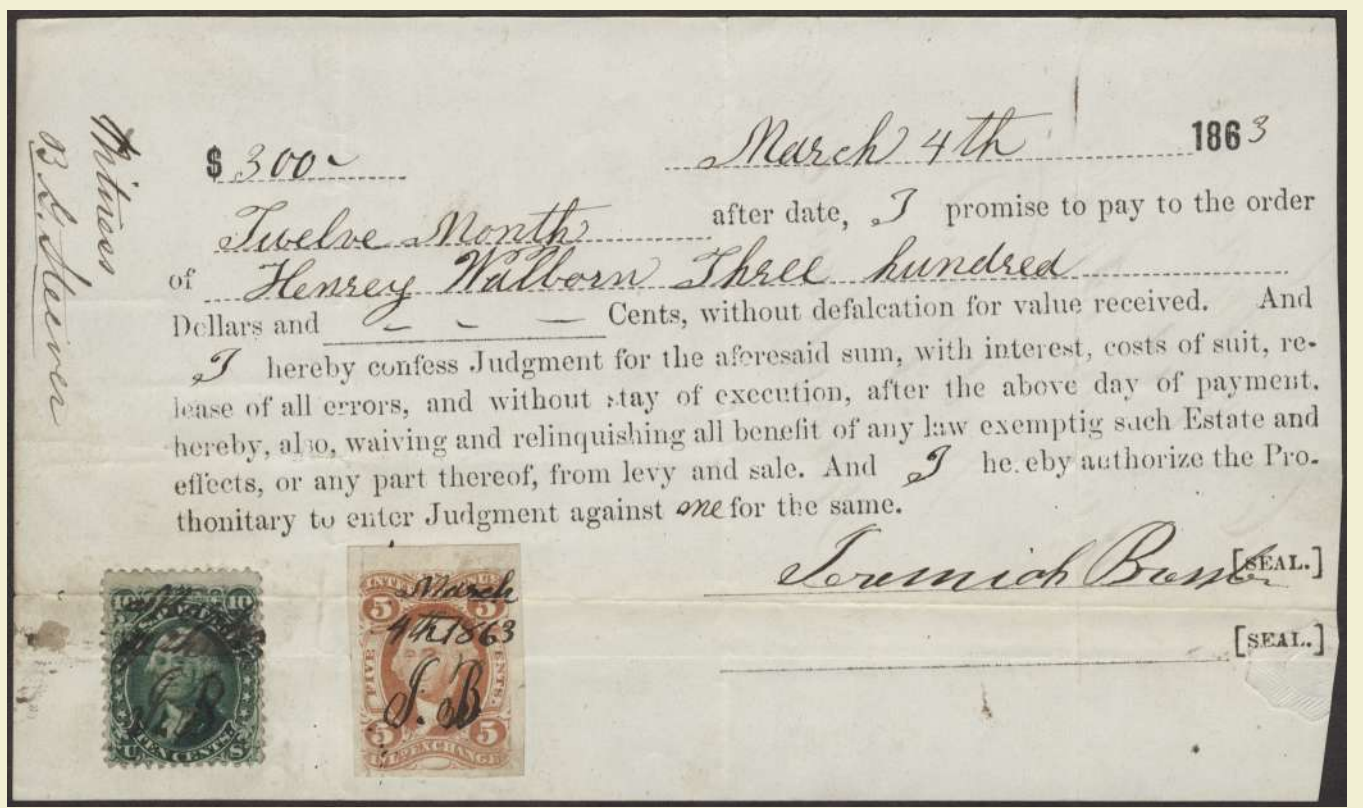 $ 300~ March 4th 1863
Twelve Month after date, I promise to pay to the order
of Henrey Walborn Three hundred
Dollars and — — — Cents, without defalcation for value received. And
I hereby confess Judgment for the aforesaid sum, with interest, costs of suit, re-
lease of all errors, and without stay of execution, after the above day of payment,
hereby, also, waiving and relinquishing all benefit of any law exemptig such Estate and
effects, or any part thereof, from levy and sale. And I hereby authorize the Pro-
thonitary to enter Judgment against me for the same.
Jeremiah [SEAL.]
[SEAL.]
Witness
B L.
10 10
March
4th
J B
U TEN CENTS S
5 5
March
4th 1863
FIVE CENTS.
J. B
5 5
EXCHANGE